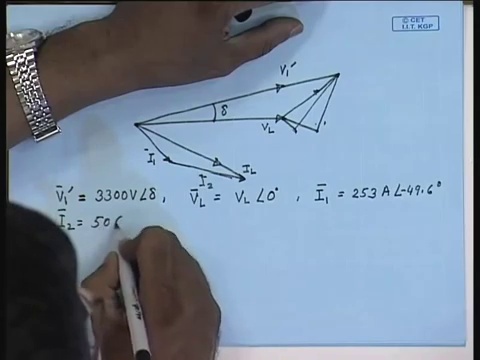 © CET
I.I.T. KGP
V₁'
δ
V_L
Ī₁
I_L
I₂
V̄₁' = 3300V∠δ , V̄_L = V_L ∠0° , Ī₁ = 253 A∠-49.6°
Ī₂ = 506